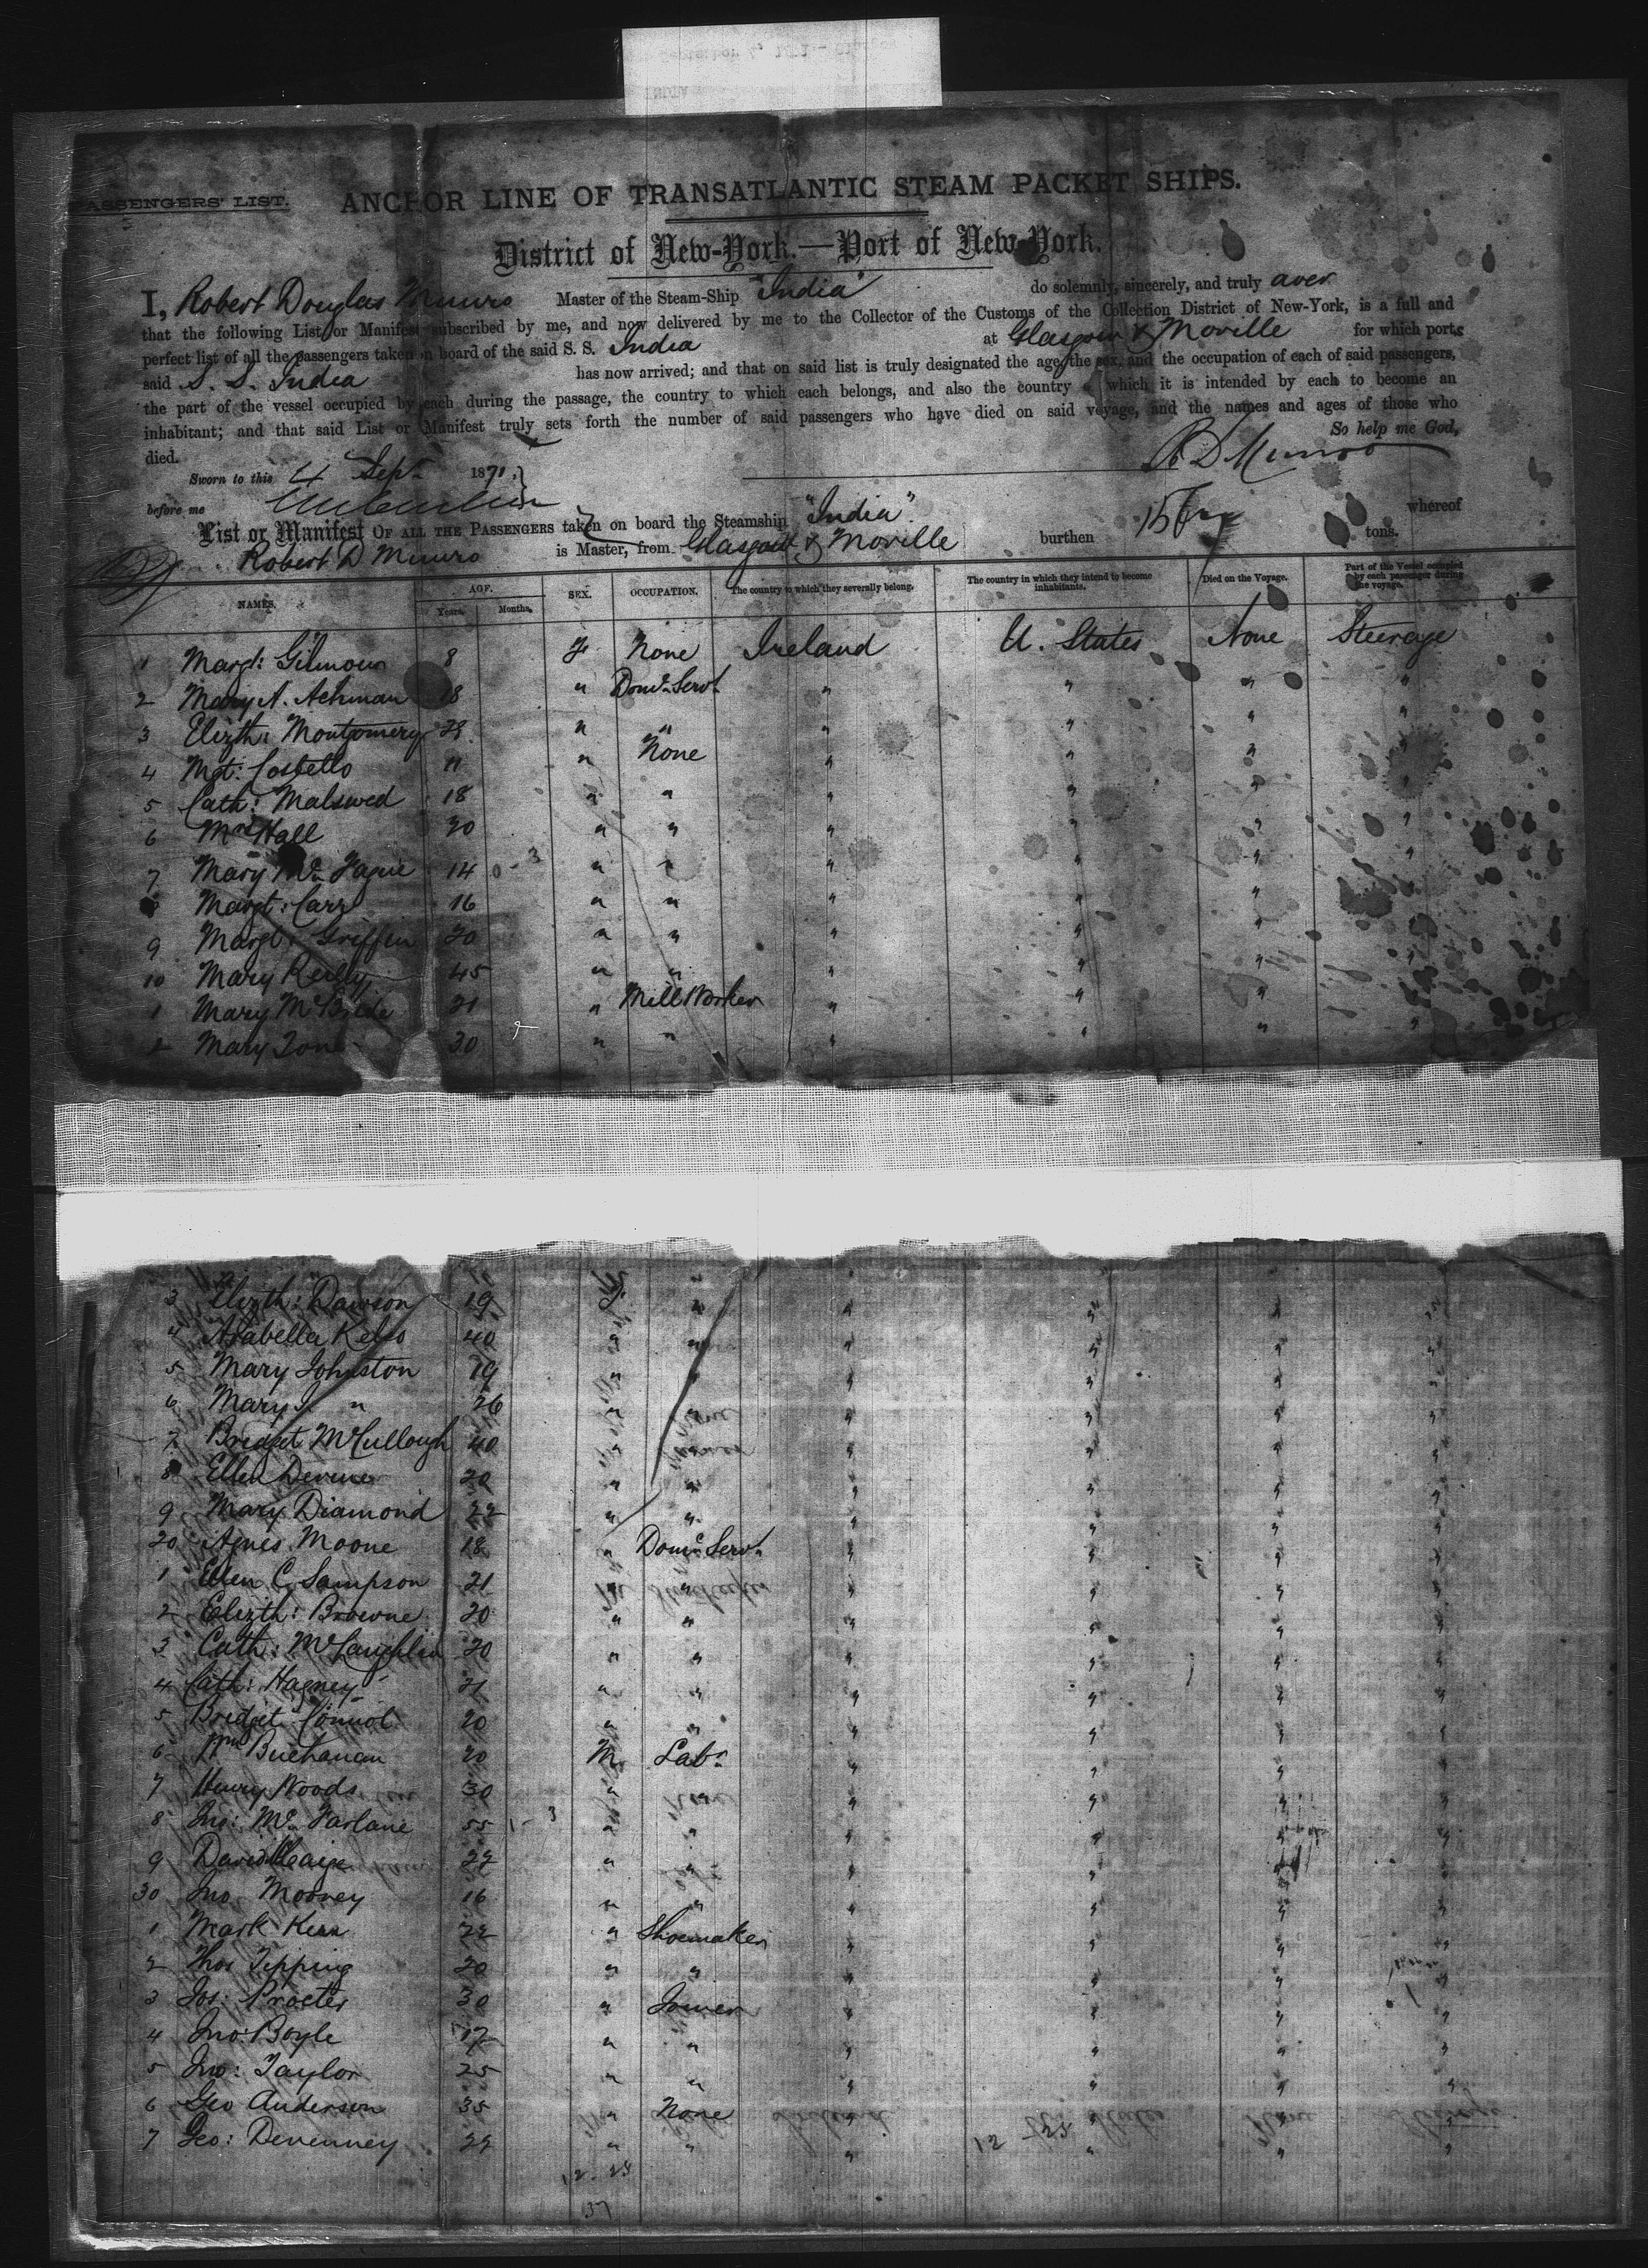 PASSENGERS' LIST.
ANCHOR LINE OF TRANSATLANTIC STEAM PACKET SHIPS.
District of New-York.—Port of New-York.
I, Robert Douglas Munro Master of the Steam-Ship "India" do solemnly, sincerely, and truly aver
that the following List or Manifest subscribed by me, and now delivered by me to the Collector of the Customs of the Collection District of New-York, is a full and
perfect list of all the passengers taken on board of the said S. S. India at Glasgow & Moville for which ports
said S. S. India has now arrived; and that on said list is truly designated the age, the sex, and the occupation of each of said passengers,
the part of the vessel occupied by each during the passage, the country to which each belongs, and also the country which it is intended by each to become an
inhabitant; and that said List or Manifest truly sets forth the number of said passengers who have died on said voyage, and the names and ages of those who
died. So help me God,
Sworn to this 4 Sept 1871. R D Munro
before me
List or Manifest OF ALL THE PASSENGERS taken on board the Steamship "India" whereof
Robert D Munro is Master, from Glasgow & Moville burthen tons.
NAMES. AGE. Years. Months. SEX. OCCUPATION. The country to which they severally belong. The country in which they intend to become inhabitants. Died on the Voyage. Part of the Vessel occupied by each passenger during the voyage.
1 Margt: Gilmour 8 F None Ireland U. States None Steerage
2 Mary A. 18 " Domc Servt " " " "
3 Elizth: Montgomery 28 " " " " " "
4 Mgt: Costello 11 " None " " " "
5 Cath: 18 " " " " " "
6 Mrs Hall 30 " " " " " "
7 Mary Mc Fague 14 " " " " " "
8 Margt: Carr 16 " " " " " "
9 Margt: Griffin 20 " " " " " "
10 Mary Reilly 45 " " " " " "
1 Mary McBride 21 " Mill Worker " " " "
2 Mary 30 " " " " " "
3 Elizth: Dawson 19 F. " " " " "
4 Arabella Kelso 40 " " " " " "
5 Mary Johnston 19 " " " " " "
6 Mary J. " 26 " " " " " "
7 Bridget McCullough 40 " " " " " "
8 Ellen Devine 20 " " " " " "
9 Mary Diamond 22 " " " " " "
20 Agnes Moone 18 " Domc Servt " " " "
1 Ellen C. Sampson 21 " " " " " "
2 Elizth: Browne 20 " " " " " "
3 Cath: McLaughlin 20 " " " " " "
4 Cath: Hagney 21 " " " " " "
5 Bridget Connol 20 " " " " " "
6 Wm Buchanan 20 M. Labr " " " "
7 Henry Woods 30 " " " " " "
8 Jno: Mc Farlane 55 " " " " " "
9 David 22 " " " " " "
30 Jno Mooney 16 " " " " " "
1 Mark Kerr 22 " Shoemaker " " " "
2 Thos Tipping 20 " " " " " "
3 Jos: Procter 30 " Joiner " " " "
4 Jno: Boyle 17 " " " " " "
5 Jno: Taylor 25 " " " " " "
6 Geo Anderson 35 " None " " " "
7 Geo: Devenney 22 " " " " " "
37